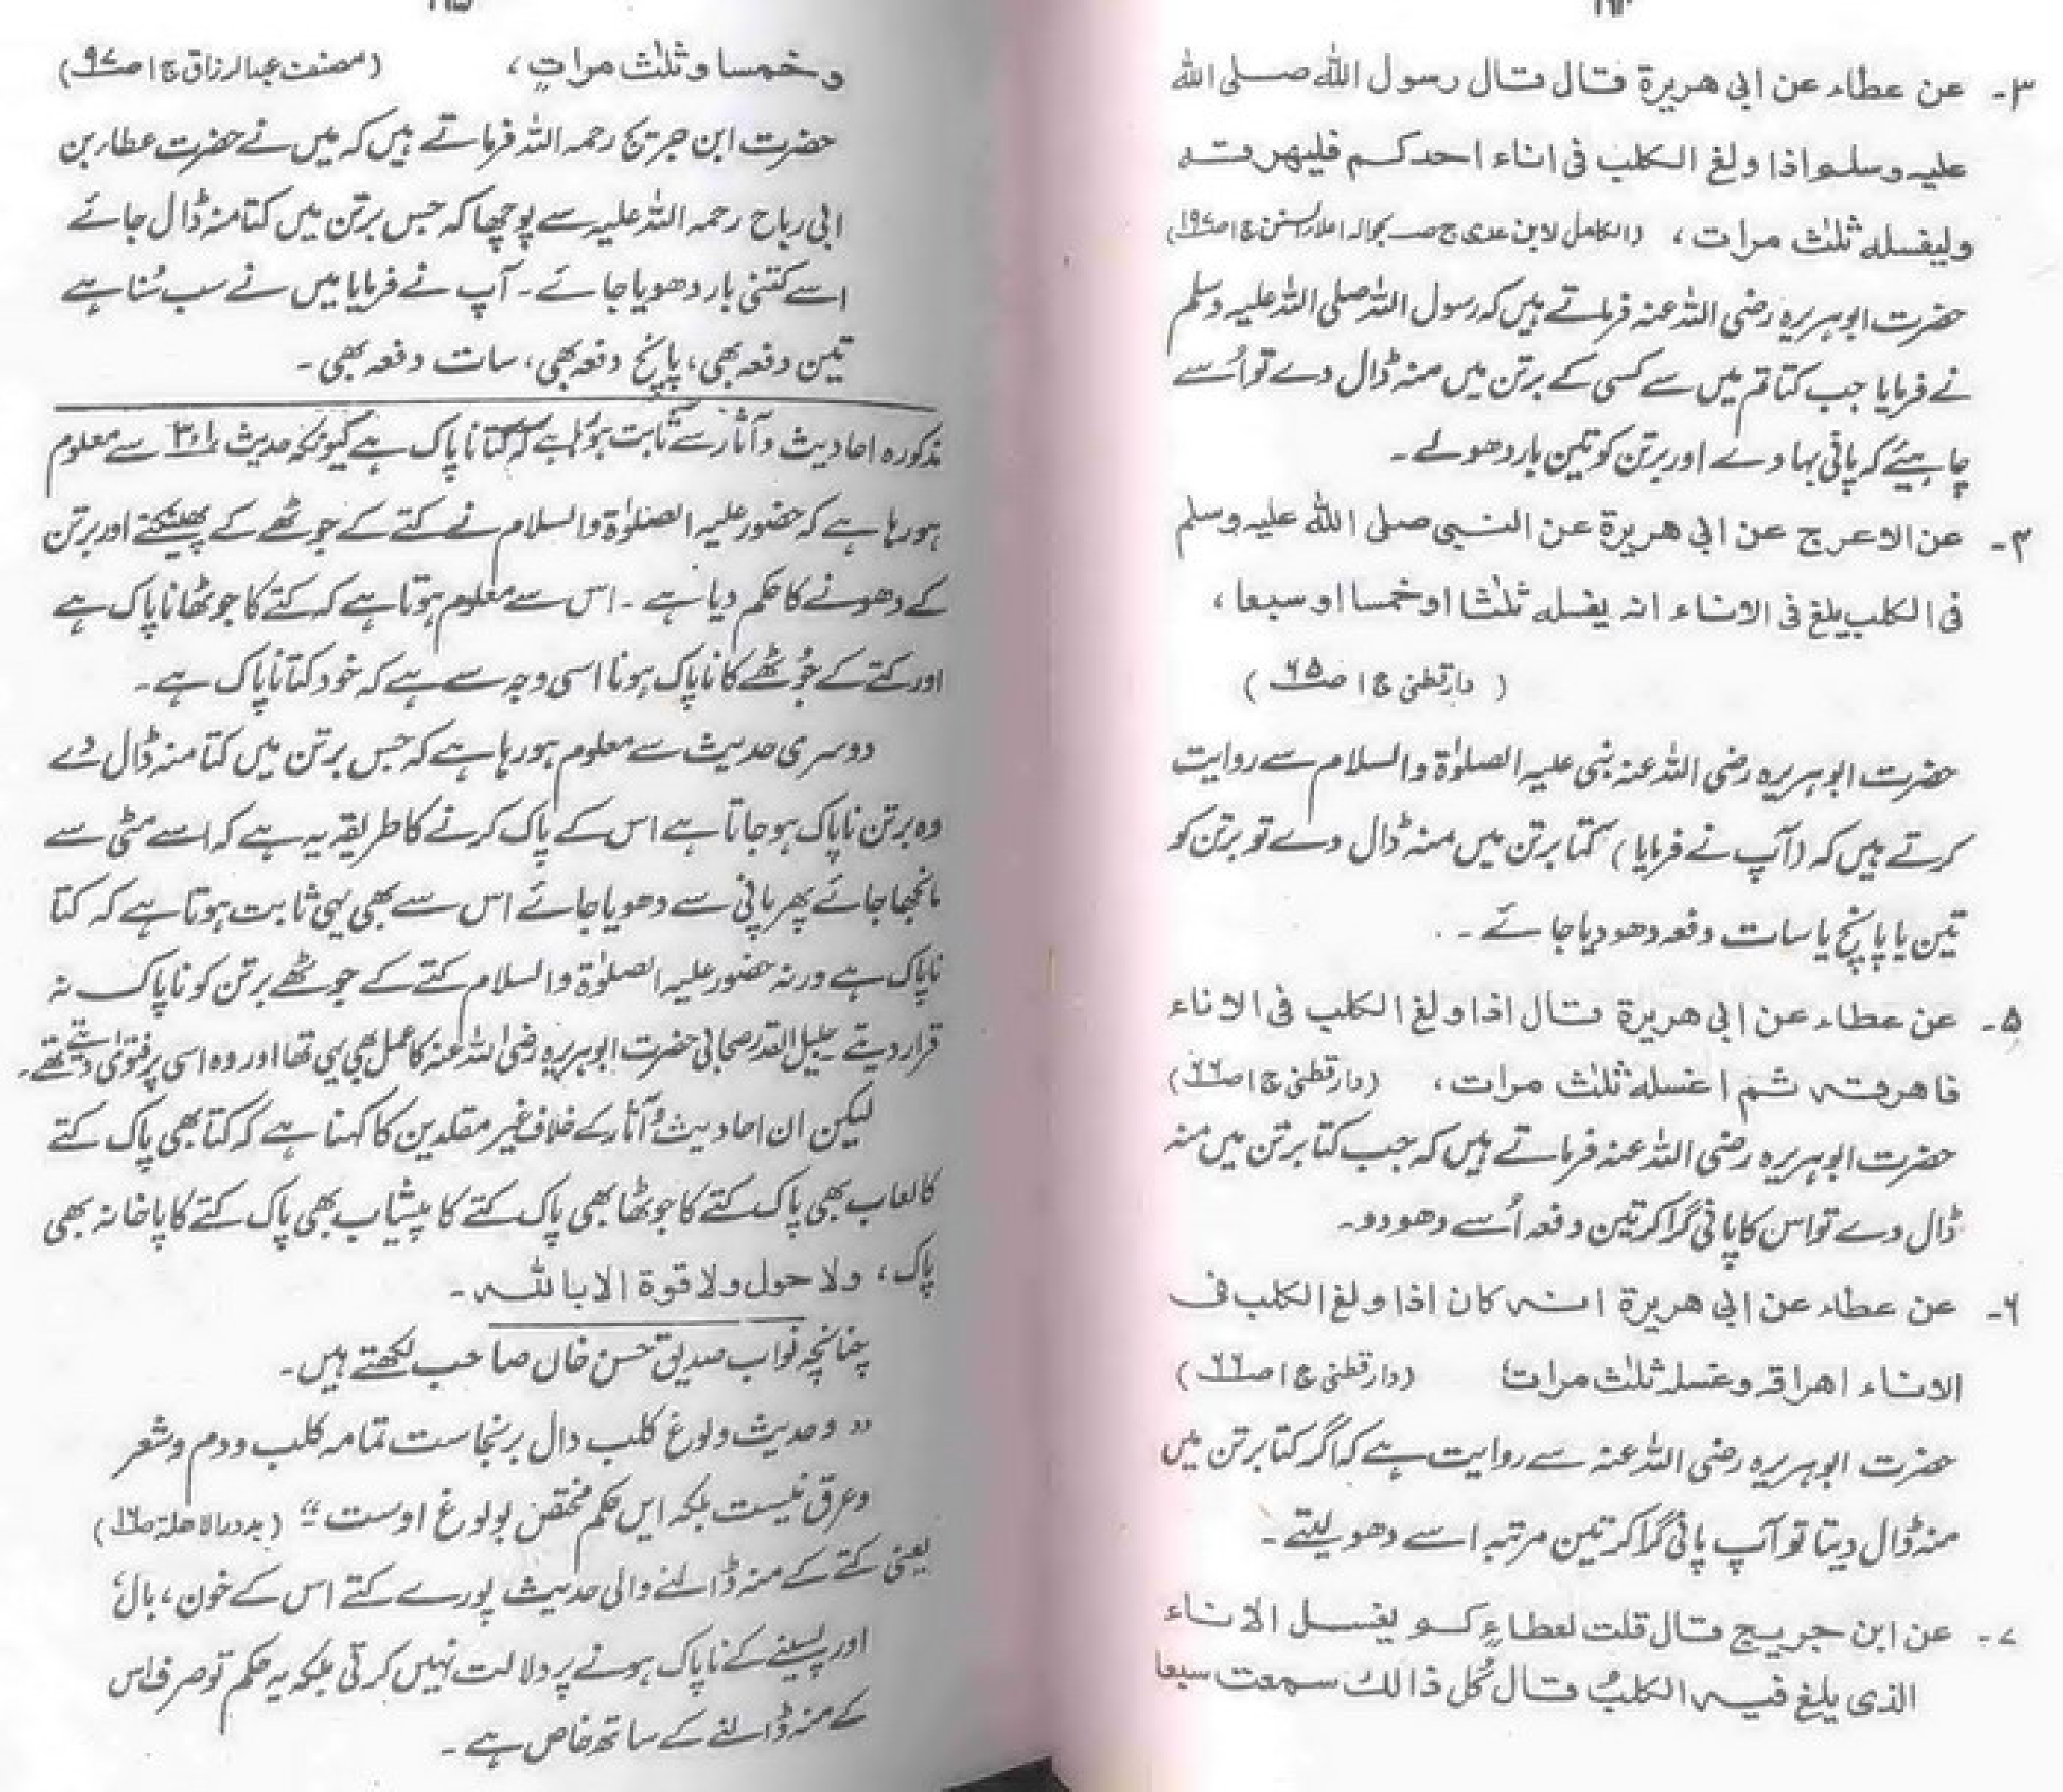 ۳۔ عن عطاء عن ابی هریرة قال قال رسول الله صلی الله
علیه وسلم اذا ولغ الکلب فی اناء احدکم فلیهرقه
ولیغسله ثلٰث مرات، (الکامل لابن عدی ج صـ بحوالہ اعلاء السنن ج ا ص۱۹۷)
حضرت ابوہریرہ رضی اللہ عنہ فرماتے ہیں کہ رسول اللہ صلی اللہ علیہ وسلم
نے فرمایا جب کتا تم میں سے کسی کے برتن میں منہ ڈال دے تو اُسے
چاہیئے کہ پانی بہا دے اور برتن کو تین بار دھولے۔
۴۔ عن الاعرج عن ابی هریرة عن النبی صلی الله علیه وسلم
فی الکلب یلغ فی الاناء انه یغسله ثلٰثا او خمسا او سبعا،
(دارقطنی ج ا ص۶۵)
حضرت ابوہریرہ رضی اللہ عنہ نبی علیہ الصلوٰۃ والسلام سے روایت
کرتے ہیں کہ (آپ نے فرمایا) کتا برتن میں منہ ڈال دے تو برتن کو
تین یا پانچ یا سات دفعہ دھودیا جائے۔
۵۔ عن عطاء عن ابی هریرة قال اذا ولغ الکلب فی الاناء
فاهرقه ثم اغسله ثلٰث مرات، (دارقطنی ج ا ص۶۶)
حضرت ابوہریرہ رضی اللہ عنہ فرماتے ہیں کہ جب کتا برتن میں منہ
ڈال دے تو اس کا پانی گرا کر تین دفعہ اُسے دھو دو۔
۶۔ عن عطاء عن ابی هریرة انه کان اذا ولغ الکلب فی
الاناء اهراقه وغسله ثلٰث مرات، (دارقطنی ج ا ص۶۶)
حضرت ابوہریرہ رضی اللہ عنہ سے روایت ہے کہ اگر کتا برتن میں
منہ ڈال دیتا تو آپ پانی گرا کر تین مرتبہ اسے دھو لیتے۔
۷۔ عن ابن جریج قال قلت لعطاءٍ کم یغسل الاناء
الذی یلغ فیه الکلبُ قال کُل ذالك سمعت سبعا
وخمسا وثلٰث مراتٍ، (مصنف عبدالرزاق ج ا ص۹۷)
حضرت ابن جریج رحمہ اللہ فرماتے ہیں کہ میں نے حضرت عطاء بن
ابی رباح رحمہ اللہ علیہ سے پوچھا کہ جس برتن میں کتا منہ ڈال جائے
اسے کتنی بار دھویا جائے۔ آپ نے فرمایا میں نے سب سُنا ہے
تین دفعہ بھی، پانچ دفعہ بھی، سات دفعہ بھی۔
مذکورہ احادیث و آثار سے ثابت ہو رہا ہے کہ کتا ناپاک ہے کیونکہ حدیث ۱، ۳ سے معلوم
ہو رہا ہے کہ حضور علیہ الصلوٰۃ والسلام نے کتے کے جوٹھے کے پھینکنے اور برتن
کے دھونے کا حکم دیا ہے۔ اس سے معلوم ہوتا ہے کہ کتے کا جوٹھا ناپاک ہے
اور کتے کے جُوٹھے کا ناپاک ہونا اسی وجہ سے ہے کہ خود کتا ناپاک ہے۔
دوسری حدیث سے معلوم ہو رہا ہے کہ جس برتن میں کتا منہ ڈال دے
وہ برتن ناپاک ہو جاتا ہے اس کے پاک کرنے کا طریقہ یہ ہے کہ اسے مٹی سے
مانجھا جائے پھر پانی سے دھویا جائے اس سے بھی یہی ثابت ہوتا ہے کہ کتا
ناپاک ہے ورنہ حضور علیہ الصلوٰۃ والسلام کتے کے جوٹھے برتن کو ناپاک نہ
قرار دیتے۔ جلیل القدر صحابی حضرت ابوہریرہ رضی اللہ عنہ کا عمل بھی یہی تھا اور وہ اسی پر فتویٰ دیتے تھے۔
لیکن ان احادیث و آثار کے خلاف غیر مقلدین کا کہنا ہے کہ کتا بھی پاک کتے
کا لعاب بھی پاک کتے کا جوٹھا بھی پاک کتے کا پیشاب بھی پاک کتے کا پاخانہ بھی
پاک، ولا حول ولا قوۃ الا باللہ۔
چنانچہ نواب صدیق حسن خاں صاحب لکھتے ہیں۔
"وحدیث ولوغ کلب دال برنجاست تمامہ کلب ودم وشعر
وعرق نیست بلکہ ایں حکم مختص بولوغ اوست" (بدور الاھلۃ ص۱۶)
یعنی کتے کے منہ ڈالنے والی حدیث پورے کتے اس کے خون، بال،
اور پسینے کے ناپاک ہونے پر دلالت نہیں کرتی بلکہ یہ حکم تو صرف اس
کے منہ ڈالنے کے ساتھ خاص ہے۔